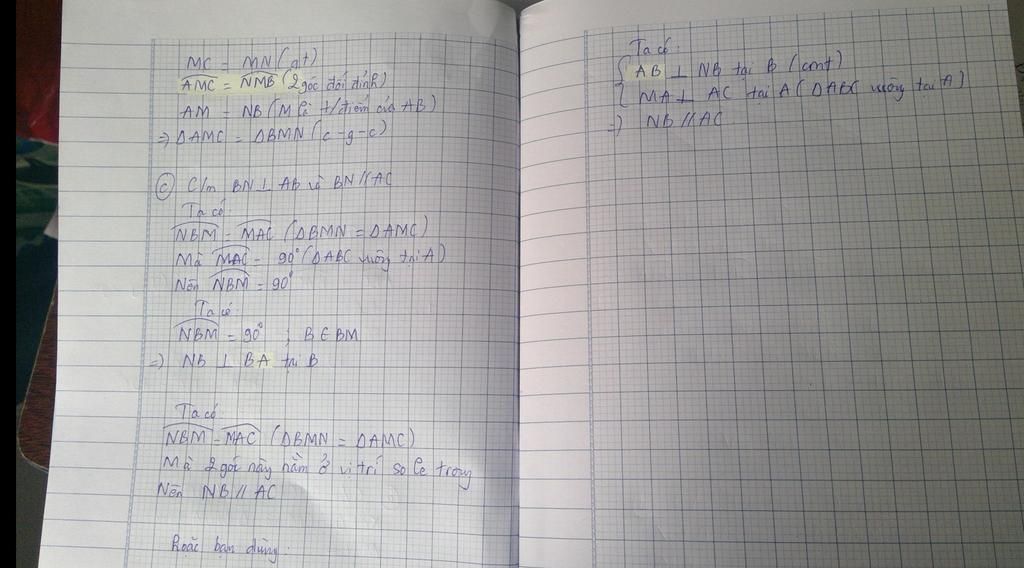 MC = MN (gt)
AMC = NMB (2 góc đối đỉnh)
AM = NB (M là t/điểm của AB)
=> ΔAMC = ΔBMN (c-g-c)
(c) C/m BN ⊥ AB và BN // AC
Ta có:
NBM = MAC (ΔBMN = ΔAMC)
Mà MAC = 90° (ΔABC vuông tại A)
Nên NBM = 90°
Ta có:
NBM = 90° ; B ∈ BM
=> NB ⊥ BA tại B
Ta có:
NBM = MAC (ΔBMN = ΔAMC)
Mà 2 góc này nằm ở vị trí so le trong
Nên NB // AC
Hoặc bạn dùng:
Ta có:
{ AB ⊥ NB tại B (cmt)
{ MA ⊥ AC tại A (ΔABC vuông tại A)
=> NB // AC